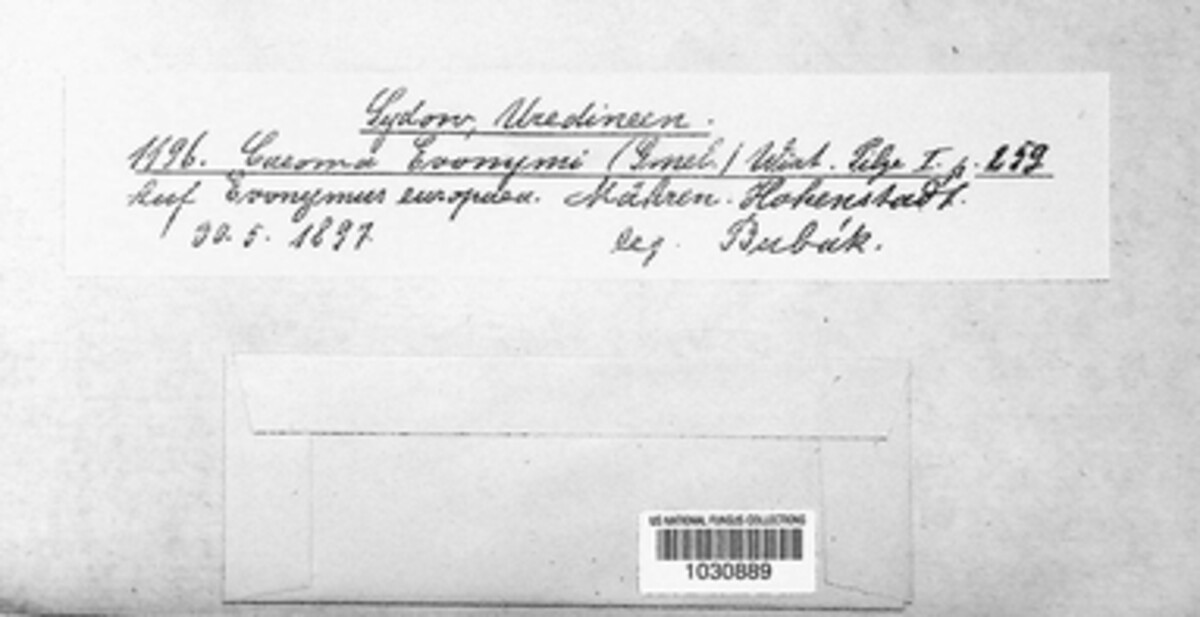 Sydow, Uredineen.
1196. Caeoma Evonymi (Gmel.) Wint. Pilze I. p. 259
Auf Evonymus europaea. Mähren. Hohenstadt.
30. 5. 1897 leg. Bubák.
US NATIONAL FUNGUS COLLECTIONS
1030889